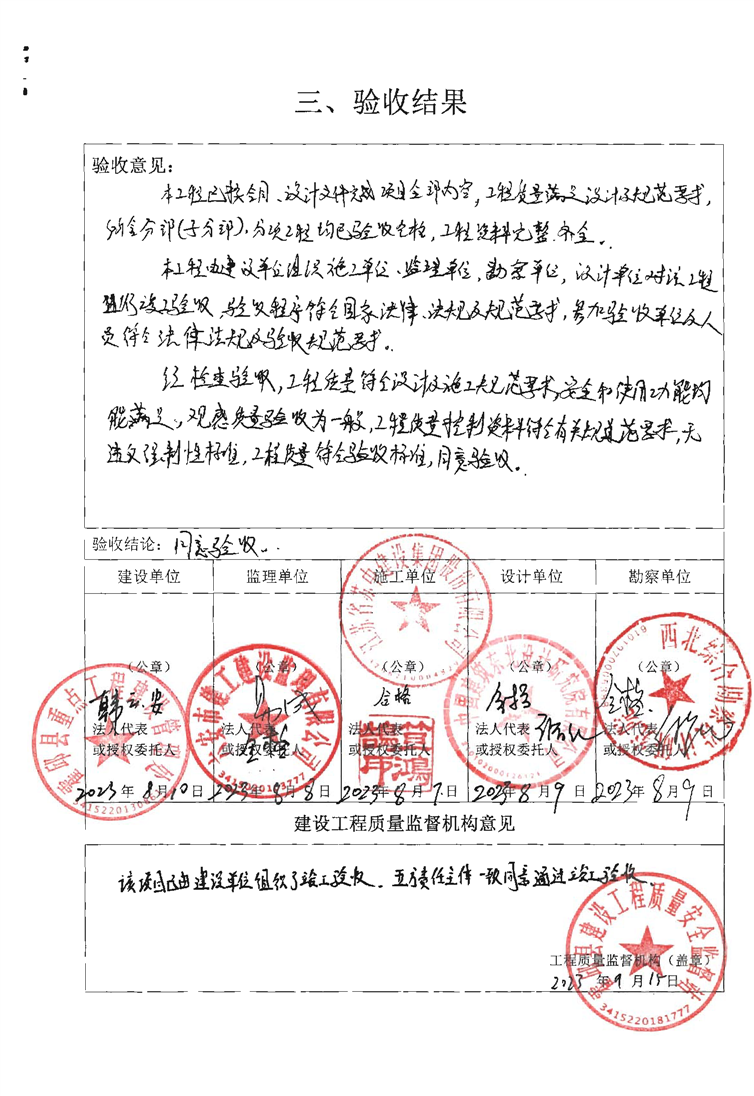 三、验收结果
验收意见：
本工程已按合同、设计文件完成项目全部内容，工程质量满足设计及规范要求，
所含分部(子分部)、分项工程均已验收合格，工程资料完整、齐全。
本工程由建设单位组织施工单位、监理单位，勘察单位，设计单位对该工程
进行竣工验收，验收程序符合国家法律、法规及规范要求，参加验收单位及人
员符合法律法规及验收规范要求。
经检查验收，工程质量符合设计及施工规范要求，安全和使用功能均
能满足，观感质量验收为一般，工程质量控制资料符合有关规范要求，无
违反强制性标准，工程质量符合验收标准，同意验收。
验收结论：同意验收.
建设单位 监理单位 施工单位 设计单位 勘察单位
江苏省苏中建设集团股份有限公司
（公章） （公章） （公章） （公章） （公章）
霍邱县重点工程建设管理处
六安市建工建设监理有限公司
中国建筑东北设计研究院有限公司
西北综合勘察设计研究院
合格
法人代表 法人代表 法人代表 法人代表 法人代表
或授权委托人 或授权委托人 或授权委托人 或授权委托人 或授权委托人
2023年8月10日 2023年8月8日 2023年8月7日 2023年8月9日 2023年8月9日
建设工程质量监督机构意见
该项目已由建设单位组织了竣工验收。五方责任主体一致同意通过竣工验收.
霍邱县建设工程质量安全监督站
工程质量监督机构（盖章）
2023年9月15日
3415220181777